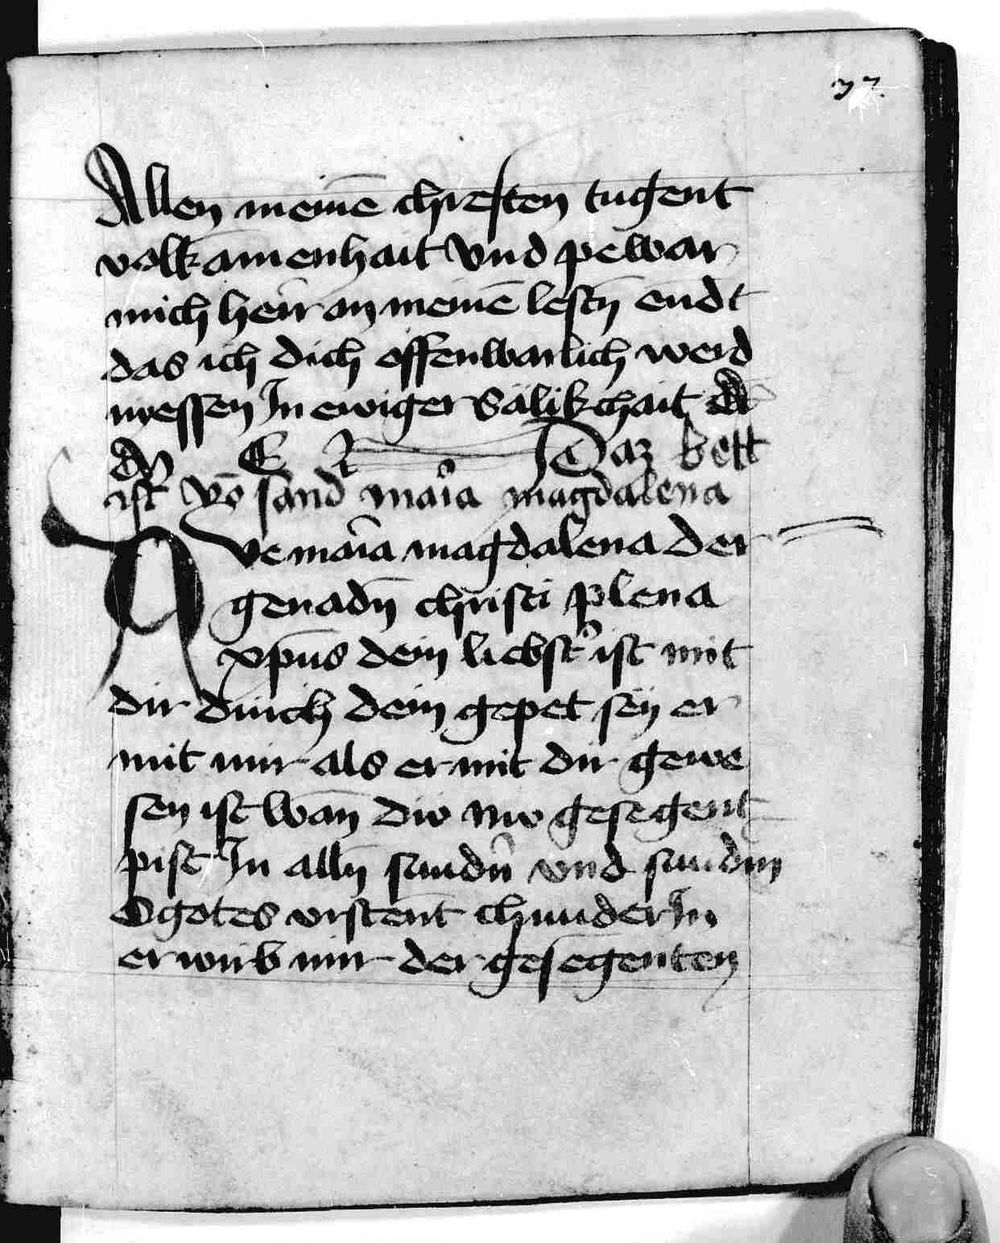 37.
Allen meinē chreften tugent
volkamenhait Vnd pewar
mich herr an meinē lestn̄ endt
das ich dich offenwarlich werd
niessen In ewiger Sälikchait
Daz bett
ist vō sand maria magdalena
Ave maria magdalena der
genadn̄ christi plena
xp̄us dein liebst' ist mit
dir durich dein gepet sey er
mit mir als er mit dir gewe
sen ist wan̄ div nw gesegent
pist In alln̄ sundn̄ vnd
O gotes vrstent chunderIn
erwirb mir der gesegenten